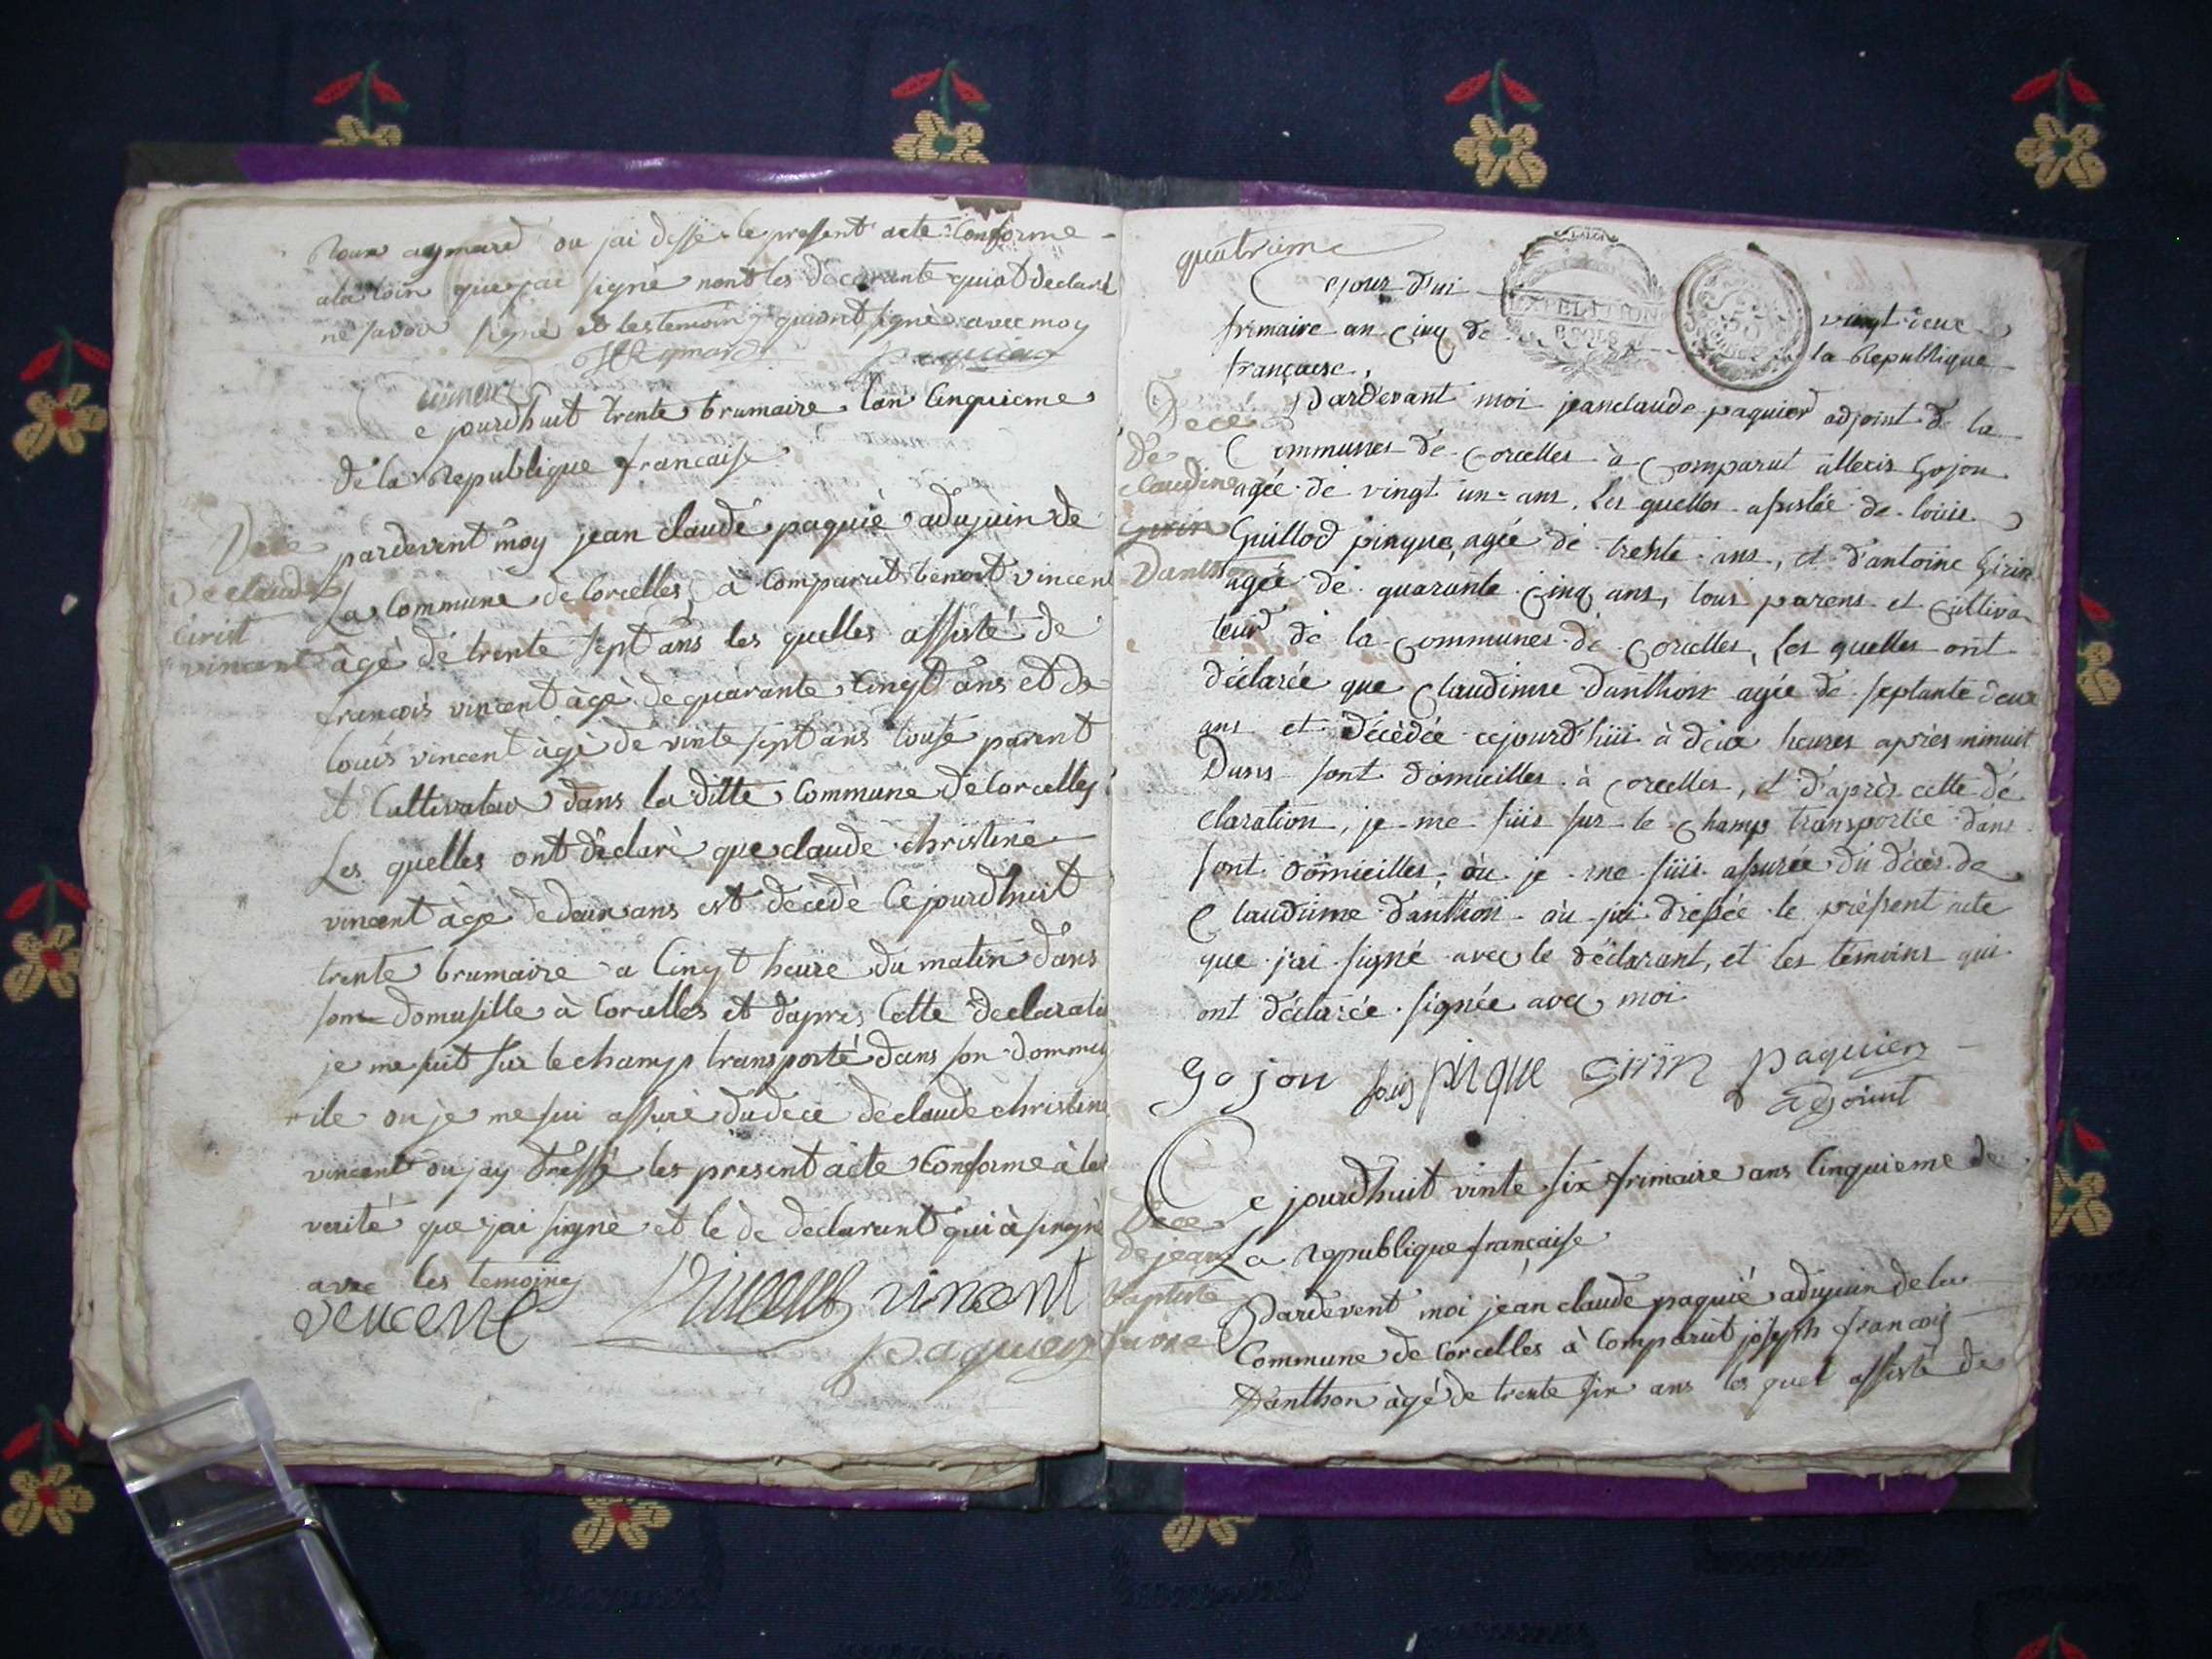 aymard ou jai dessé le present acte Conforme
a la loin que jai signé non les déclarante qui at declaré
ne savoir signé et les temoin qui ont signé avec moy
Aymard paquier
Ce jourdhuit trente brumaire lan Cinquieme
de la Republique francaise
Dece
de claude
Crist
vincent
pardevent moy jean claude paquié adujuin de
La Commune de Corcelles à Comparut benoit vincent
àgé de trente sept ans les quelles assisté de
francois vincent àgé de quarante Cingt ans et de
louis vincent àgé de vinte sept ans touse parent
et Cultivateur dans la ditte Commune de Corcelles
Les quelles ont déclaré que claude christine
vincent àgé de deux ans est décédé Ce jourdhuit
trente brumaire a Cingt heure du matin dans
son domusille à Corcelles et dapres Cette declaratio
je me suit sur le champ transporté dans son dommis
ile ou je me sui assuré du dece de claude christine
vincent ou jay dressé les present acte Conforme à la
verité que jai signé et le de declarant qui à singné
avec les temoing
vencent Vincent vincent
paquier
quatrieme
Cejour d'ui vingt deux
frimaire an Cinq de la Republique
françaisse,
Decé
de
claudine
Girin
Danthon
Pardevant moi jeanclaude paquier adjoint de la
Communes de Corcelles à Comparut allexis Gojon
agée de vingt un ans, Les quelles assistée de loüis
Guillod pinque, agée de trente ans, et d'antoine Girin
agée de quarante Cinq ans, tous parens et Cultiva
teur de la Communes de Corcelles, Les quelles ont
déclarée que Claudinne Danthon agée de septante deux
ans et décédée cejourd'hüi à deux heures après minuit
Dans sont domicilles à Corcelles, et d'après cette dé
claration, je me süis sur le Champ transportée dans
sont domicilles, où je me süis assurée du décès de
Claudinne d'anthon où jai dressée le présent acte
que jai signé avec le déclarant, et les témoins qui
ont déclarée signée avec moi
gojon louis pinque Girin paquier
adjoint
Ce jourdhuit vinte six frimaire ans Cinquieme de
La republique française
Dece
de jean
baptiste
Pardevent moi jean claude paquié adujuin de la
Commune de Corcelles à Comparut joseph francois
Danthon àgé de trente six ans les quel assisté de